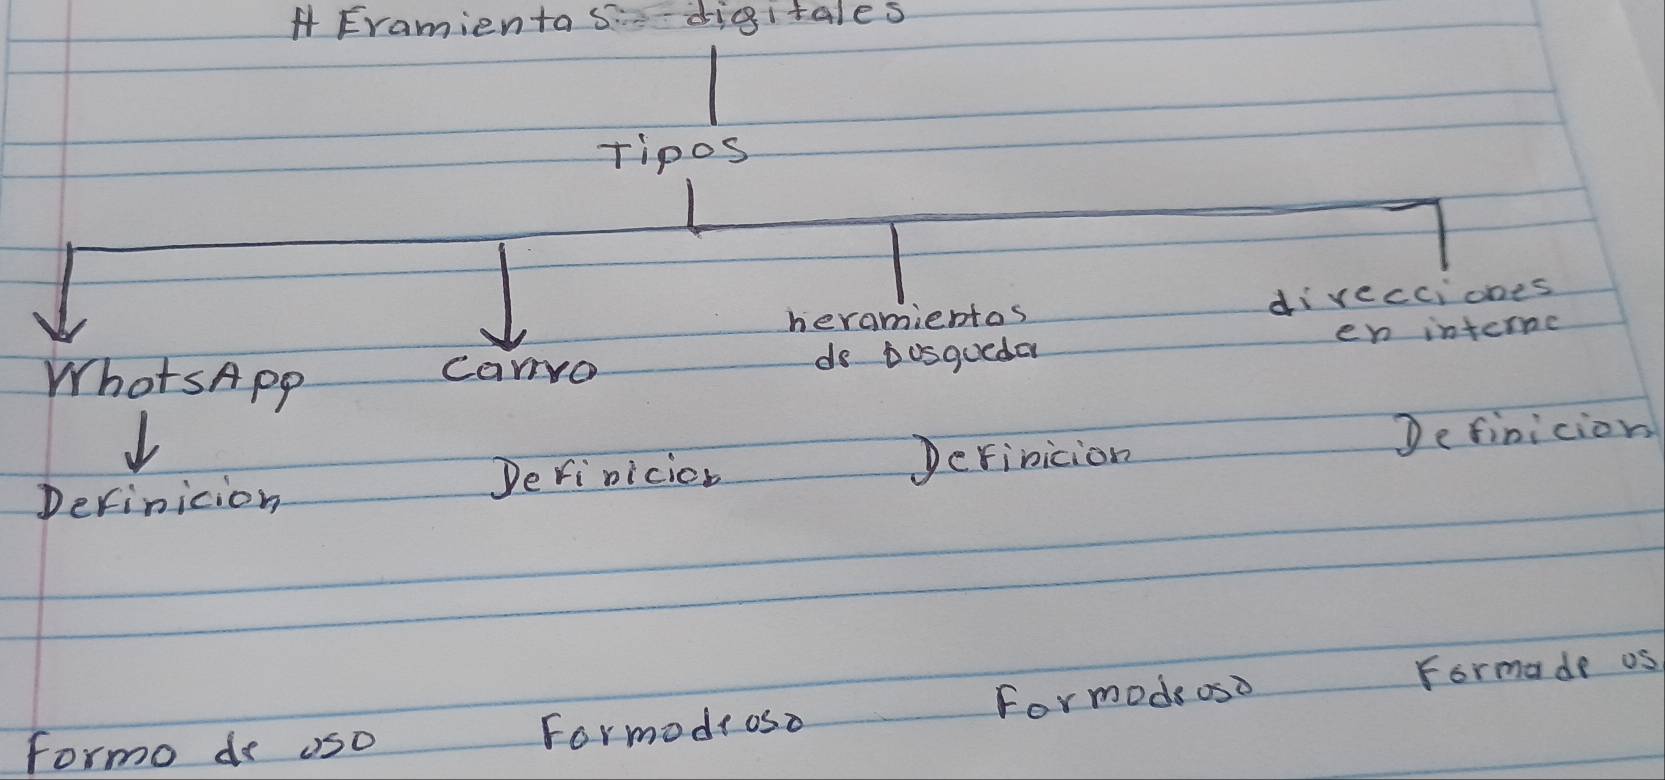 HEramientas digitales
Tipos
WhatsApp
canva
heramientas
de busqueda
direcciones
en interne
Definicion
Definicion
Definicion
Definicion
Forma de uso
Forma de uso
Forma de uso
Forma de us